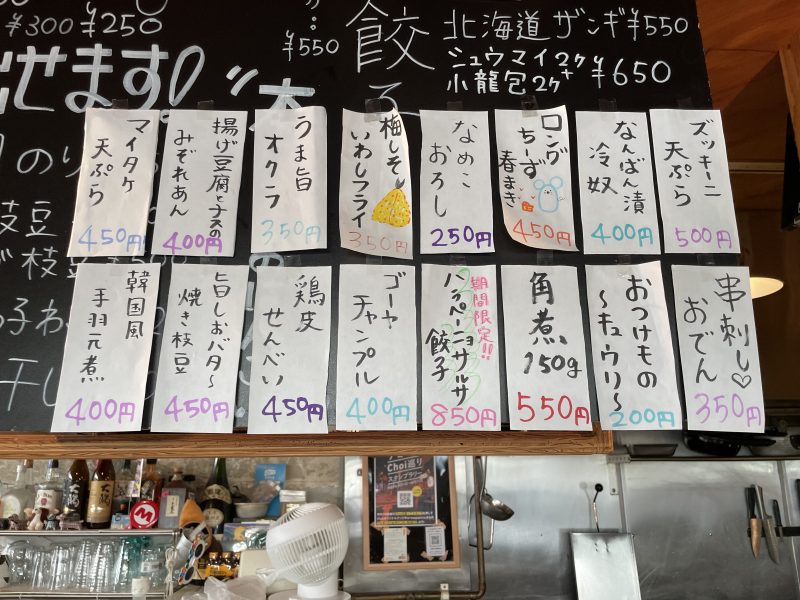 ¥300 ¥250
¥550
餃子
北海道ザンギ¥550
シュウマイ2ヶ
小籠包2ヶ
¥650
せます!
ズッキーニ
天ぷら
500円
なんばん漬
冷奴
400円
ロング
ちーず
春まき
450円
なめこ
おろし
250円
梅しそ
いわしフライ
350円
うま旨
オクラ
350円
揚げ豆腐とナスの
みぞれあん
400円
マイタケ
天ぷら
450円
串刺し♡
おでん
350円
おつけもの
～キュウリ～
200円
角煮
150g
550円
期間限定!!
ハラペーニョサルサ
餃子
850円
ゴーヤ
チャンプル
400円
鶏皮
せんべい
450円
旨しおバタ～
焼き枝豆
450円
韓国風
手羽元煮
400円
Choi巡り
スタンプラリー